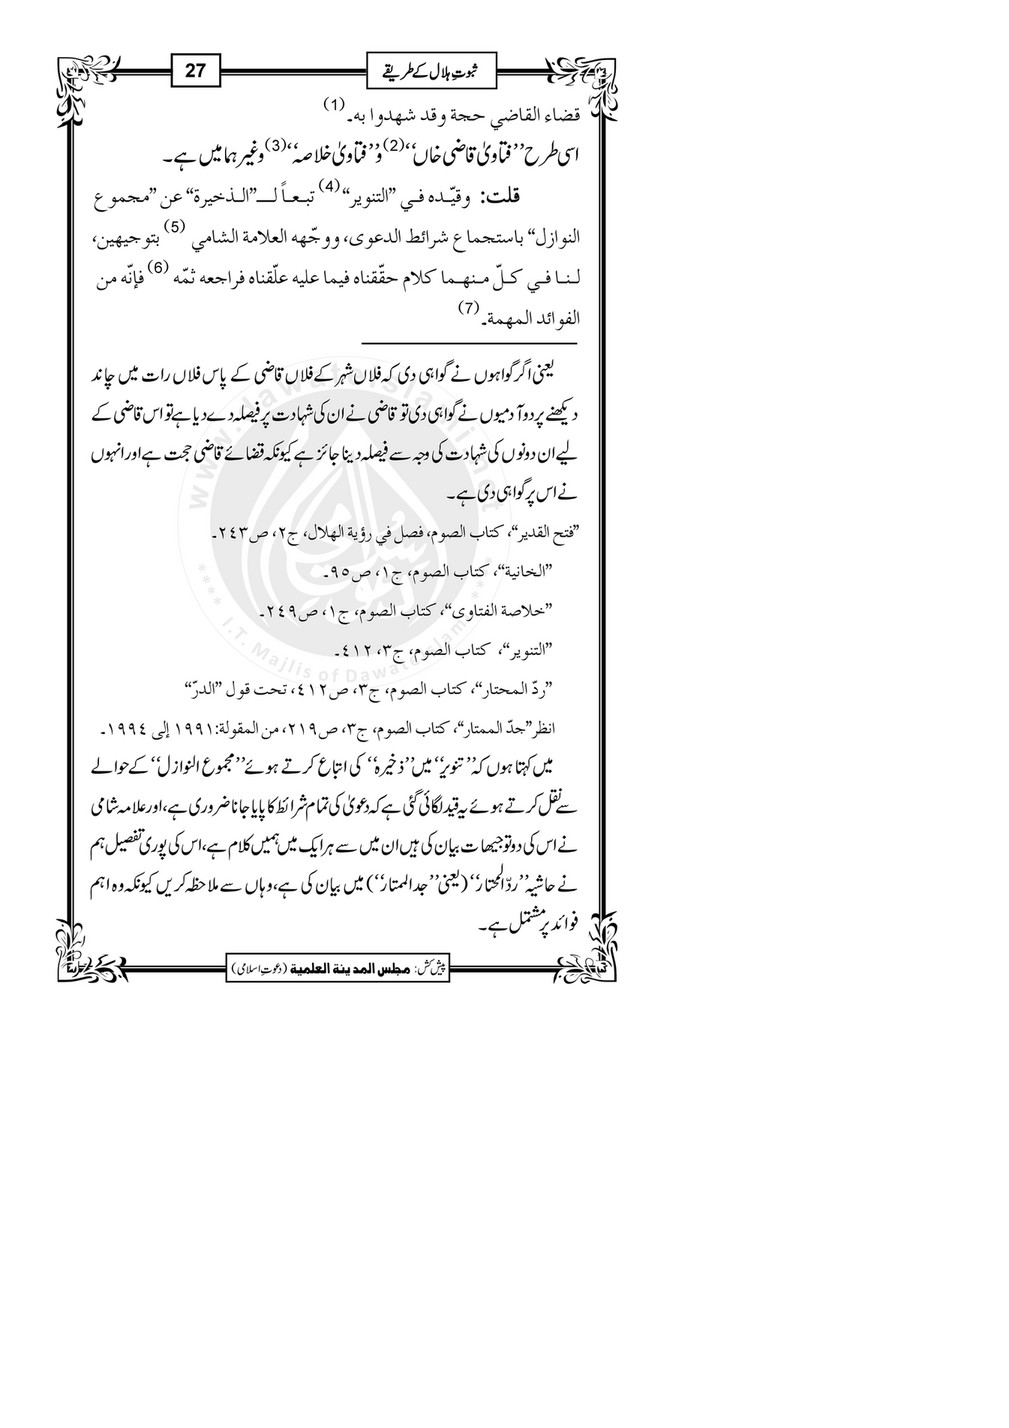 ثبوتِ ہلال کے طریقے 27
قضاء القاضي حجة وقد شهدوا به۔(1)
اسی طرح ’’فتاویٰ قاضی خاں‘‘(2) و’’فتاویٰ خلاصہ‘‘(3) وغیرہما میں ہے۔
قلت: وقيّده في ”التنوير“(4) تبعاً لـ”الذخيرة“ عن ”مجموع
النوازل“ باستجماع شرائط الدعوى، ووجّهه العلامة الشامي(5) بتوجيهين،
لنا في كلّ منهما كلام حقّقناه فيما عليه علّقناه فراجعه ثمّه(6) فإنّه من
الفوائد المهمة۔(7)
یعنی اگر گواہوں نے گواہی دی کہ فلاں شہر کے فلاں قاضی کے پاس فلاں رات میں چاند
دیکھنے پر دو آدمیوں نے گواہی دی تو قاضی نے ان کی شہادت پر فیصلہ دے دیا ہے تو اس قاضی کے
لیے ان دونوں کی شہادت کی وجہ سے فیصلہ دینا جائز ہے کیونکہ قضائے قاضی حجت ہے اور انہوں
نے اس پر گواہی دی ہے۔
”فتح القدير“، كتاب الصوم، فصل في رؤية الهلال، ج۲، ص۲٤۳۔
”الخانية“، كتاب الصوم، ج۱، ص۹٥۔
”خلاصة الفتاوى“، كتاب الصوم، ج۱، ص۲٤۹۔
”التنوير“، كتاب الصوم، ج۳، ٤۱۲۔
”ردّ المحتار“، كتاب الصوم، ج۳، ص٤۱۲، تحت قول ”الدرّ“
انظر”جدّ الممتار“، كتاب الصوم، ج۳، ص۲۱۹، من المقولة:۱۹۹۱ إلى ۱۹۹٤۔
میں کہتا ہوں کہ’’تنویر‘‘ میں’’ذخیرہ‘‘ کی اتباع کرتے ہوئے’’مجموع النوازل‘‘ کے حوالے
سے نقل کرتے ہوئے یہ قید لگائی گئی ہے کہ دعویٰ کی تمام شرائط کا پایا جانا ضروری ہے، اور علامہ شامی
نے اس کی دو توجیہات بیان کی ہیں ان میں سے ہر ایک میں ہمیں کلام ہے، اس کی پوری تفصیل ہم
نے حاشیہ’’ردّ المحتار‘‘ (یعنی’’جد الممتار‘‘) میں بیان کی ہے، وہاں سے ملاحظہ کریں کیونکہ وہ اہم
فوائد پر مشتمل ہے۔
پیش کش: مجلس المدينة العلمية (دعوتِ اسلامی)
www.dawateislami.net
**** I.T. Majlis of DawateIslami ****